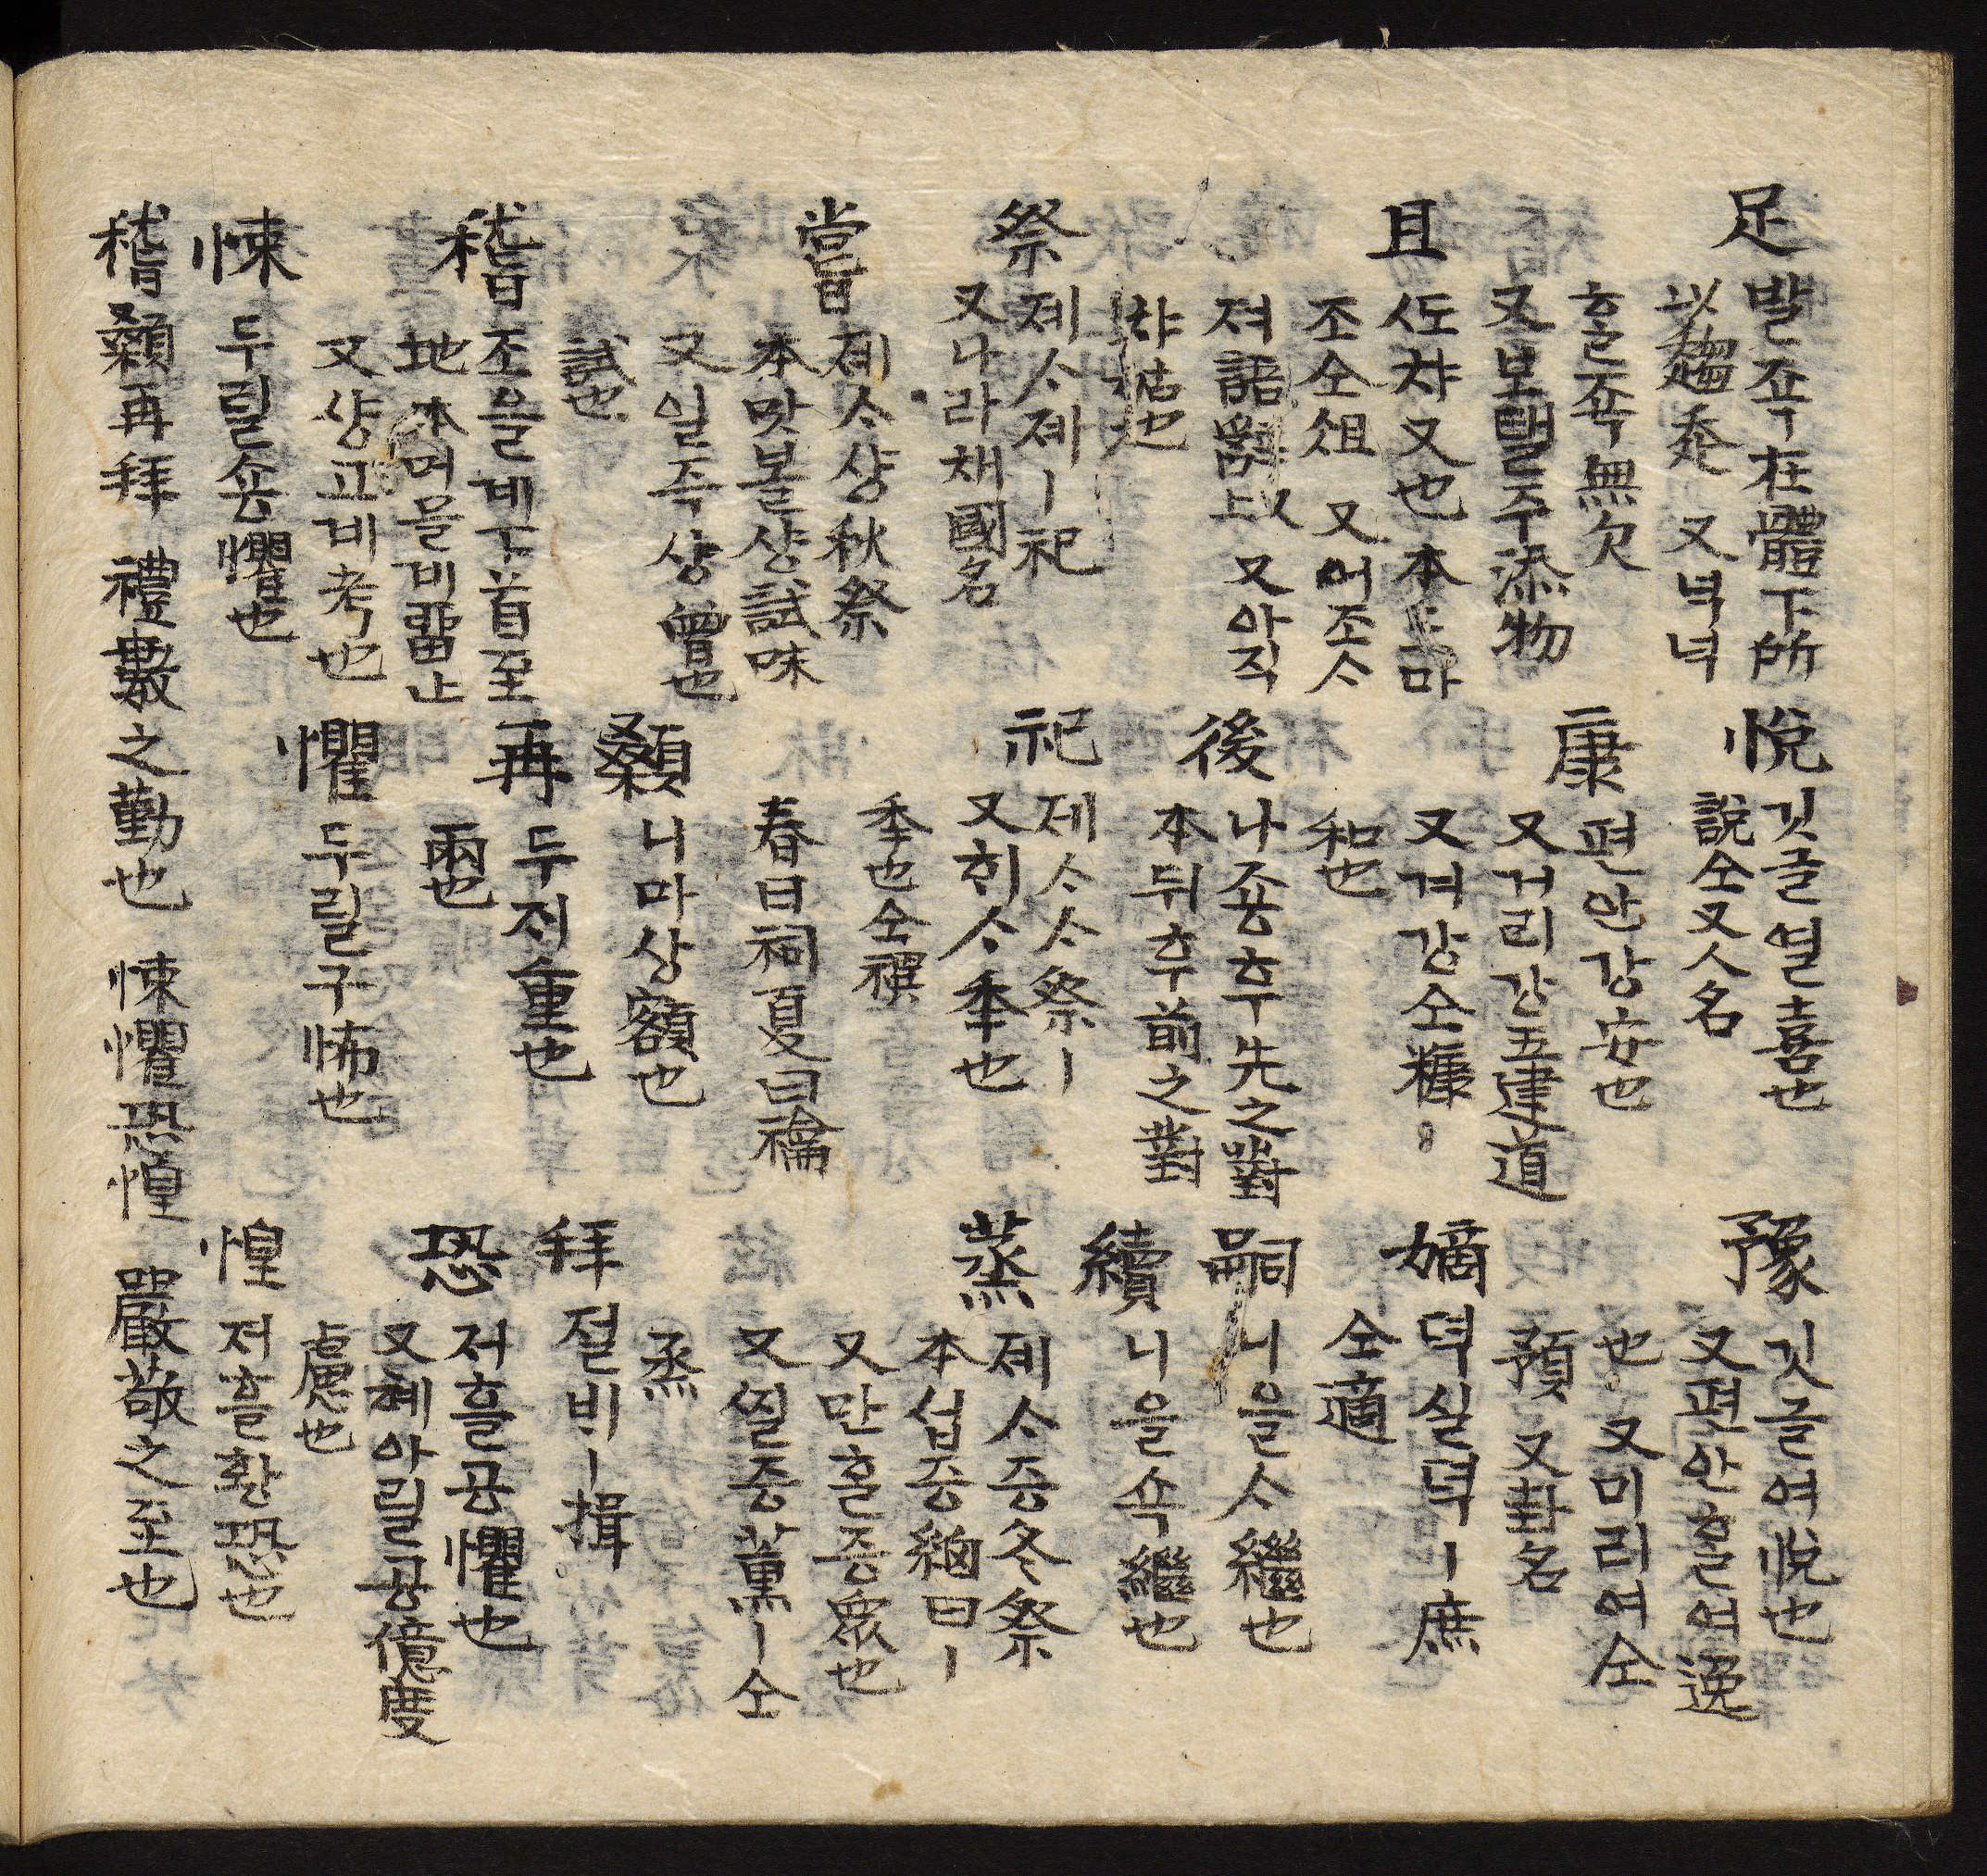 足
발죡在體下所
以趨走 又녁녁
흘죡無欠
又보탤주添物
悅
깃글열喜也
說仝又人名
豫
깃글여悅也
又편안흘여逸
也 又미리여仝
預 又卦名
且
又也 本
조仝俎 又어조ᄉ
져語辭上 又아직
챠姑也
康
편안강安也
又거리강五達道
又겨강仝糠
和也
嫡
뎍실뎍ㅣ庶
仝適
後
나죵후先之對
本뒤후前之對
嗣
니을ᄉ繼也
續
니을쇽繼也
祭
졔ᄉ졔ㅣ祀
又나라채國名
祀
졔ᄉᄉ祭ㅣ
又ᄒᆡᄉ年也
年也仝禩
蒸
졔ᄉ증冬祭
本섭증細曰ㅣ
又만흘증衆也
又ᄶᅵᆯ증薰ㅣ仝
烝
嘗
졔ᄉ샹秋祭
本맛볼샹試味
又일즉샹曾也
試也
春曰祠夏曰禴
稽
조을계下首至
地 本머믈비留止
又샹고비考也
顙
니마상額也
再
두ᄌᆡ重也
兩也
拜
졀비ㅣ揖
悚
두릴숑懼也
懼
두릴구怖也
恐
저흘공懼也
又혜아릴공億度
慮也
惶
저흘황恐也
稽顙再拜 禮數之勤也 悚懼恐惶 嚴敬之至也